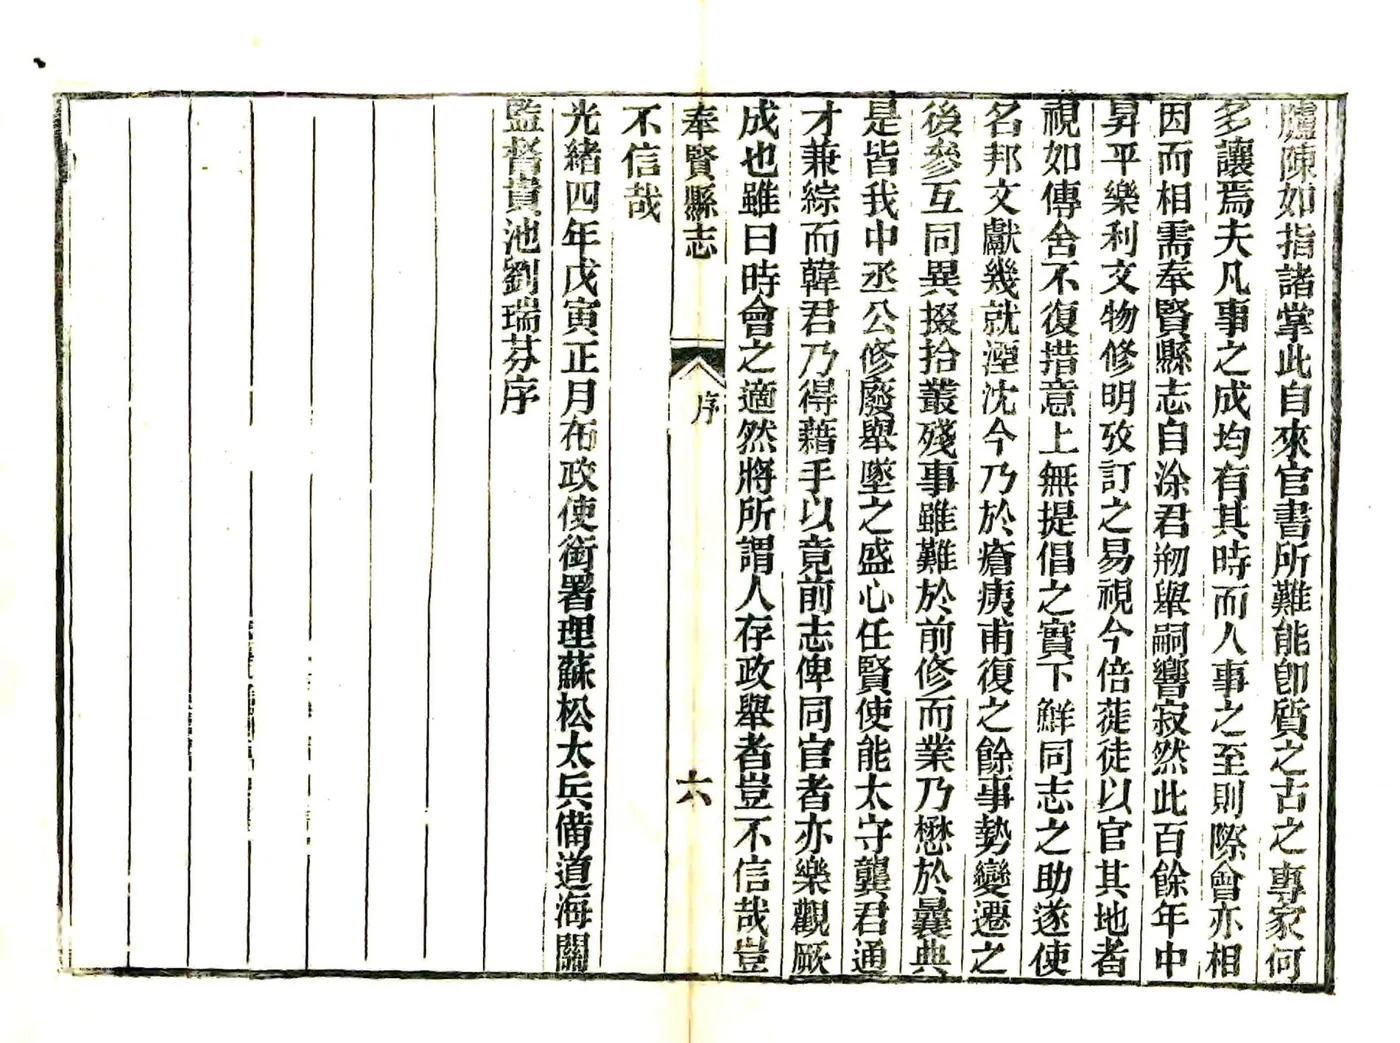 臚陳如指諸掌此自來官書所難能卽質之古之專家何
多讓焉夫凡事之成均有其時而人事之至則際會亦相
因而相需奉賢縣志自涂君剏舉嗣響寂然此百餘年中
昇平樂利文物修明攷訂之易視今倍蓰徒以官其地者
視如傳舍不復措意上無提倡之實下鮮同志之助遂使
名邦文獻幾就湮沈今乃於瘡痍甫復之餘事勢變遷之
後參互同異掇拾叢殘事雖難於前修而業乃懋於曩典
是皆我中丞公修廢舉墜之盛心任賢使能太守龔君通
才兼綜而韓君乃得藉手以竟前志俾同官者亦樂觀厥
成也雖曰時會之適然將所謂人存政舉者豈不信哉豈
奉賢縣志 序 六
不信哉
光緒四年戊寅正月布政使銜署理蘇松太兵備道海關
監督貴池劉瑞芬序